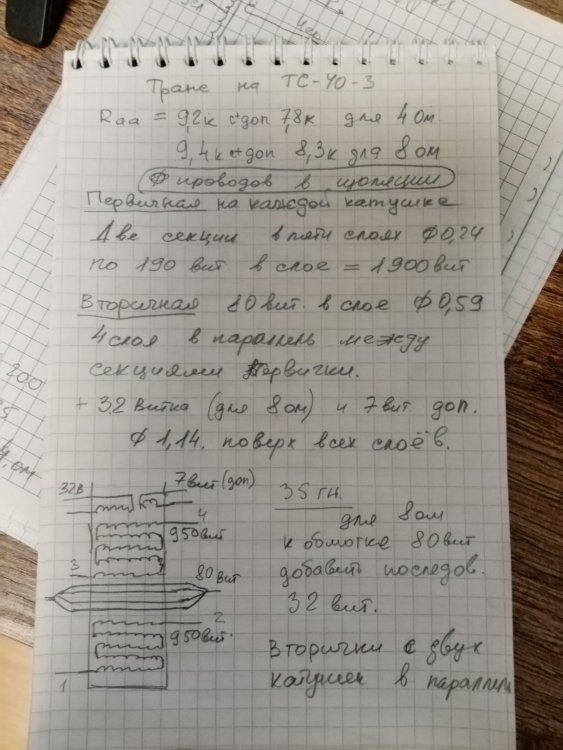 Транс на ТС-40-3
Rаа = 9,2к с+доп 7,8к для 4 ом
9,4к с+доп 8,3к для 8 ом
Ф проводов в изоляции
Первичная на каждой катушке
Две секции в пяти слоях Ф0,24
по 190 вит в слое = 1900 вит
Вторичная 80 вит. в слое Ф0,59
4 слоя в параллель между
секциями первички.
+ 32 витка (для 8 ом) и 7 вит доп.
Ф 1,14. поверх всех слоёв.
32В 7 вит (доп)
4
950 вит
3 80 вит
2
950 вит.
1
35 ГН.
для 8 ом
к обмотке 80 вит
добавить последов.
32 вит.
Вторички с двух
катушек в параллель
200
ом